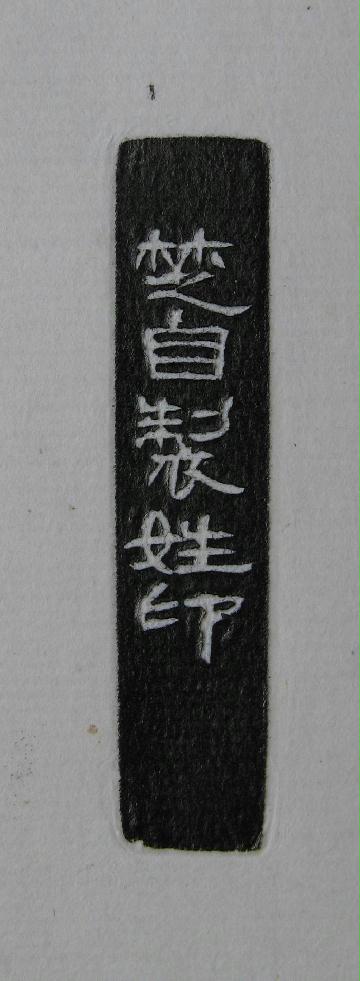 芝自製姓印